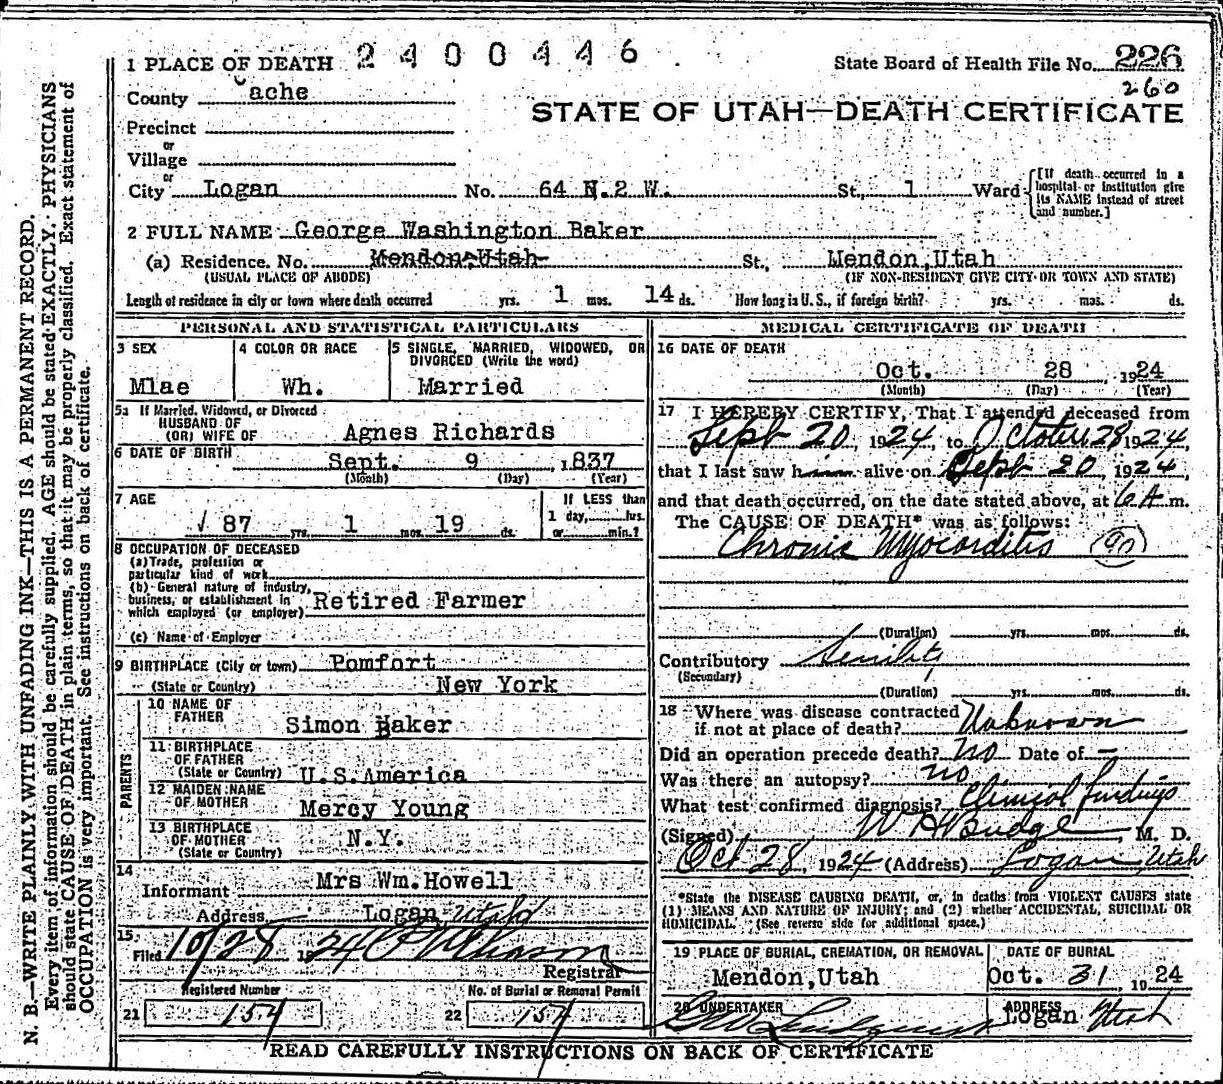 1 PLACE OF DEATH 2400446 State Board of Health File No. 226
County Cache 260
STATE OF UTAH—DEATH CERTIFICATE
Precinct
or
Village
or
City Logan No. 64 N.2 W. St., 1 Ward [If death occurred in a hospital or institution give its NAME instead of street and number.]
2 FULL NAME George Washington Baker
(a) Residence. No. Mendon,Utah St., Mendon,Utah
(USUAL PLACE OF ABODE) (IF NON-RESIDENT GIVE CITY OR TOWN AND STATE)
Length of residence in city or town where death occurred yrs. 1 mos. 14 ds. How long in U. S., if foreign birth? yrs. mos. ds.
PERSONAL AND STATISTICAL PARTICULARS
3 SEX 4 COLOR OR RACE 5 SINGLE, MARRIED, WIDOWED, OR
DIVORCED (Write the word)
Mlae Wh. Married
5a If Married, Widowed, or Divorced
HUSBAND OF
(OR) WIFE OF Agnes Richards
6 DATE OF BIRTH Sept. 9 , 1837
(Month) (Day) (Year)
7 AGE If LESS than
87 yrs. 1 mos. 19 ds. 1 day, hrs.
or min.?
8 OCCUPATION OF DECEASED
(a) Trade, profession or
particular kind of work
(b) General nature of industry,
business, or establishment in
which employed (or employer) Retired Farmer
(c) Name of Employer
9 BIRTHPLACE (City or town) Pomfort
(State or Country) New York
PARENTS
10 NAME OF
FATHER Simon Baker
11 BIRTHPLACE
OF FATHER
(State or Country) U.S.America
12 MAIDEN NAME
OF MOTHER Mercy Young
13 BIRTHPLACE
OF MOTHER
(State or Country) N.Y.
14
Informant Mrs Wm.Howell
Address Logan Utah
15
Filed 10/28 1924
Registrar
Registered Number No. of Burial or Removal Permit
21 157 22 157
MEDICAL CERTIFICATE OF DEATH
16 DATE OF DEATH
Oct. 28 , 1924
(Month) (Day) (Year)
17 I HEREBY CERTIFY, That I attended deceased from
Sept 20, 1924, to October 28 1924
that I last saw h alive on Sept 20, 1924,
and that death occurred, on the date stated above, at 6 A m.
The CAUSE OF DEATH* was as follows:
Chronic Myocarditis (90)
(Duration) yrs. mos. ds.
Contributory Senility
(Secondary)
(Duration) yrs. mos. ds.
18 Where was disease contracted
if not at place of death? Unknown
Did an operation precede death? no Date of —
Was there an autopsy? no
What test confirmed diagnosis? Clinical findings
(Signed) W H Budge, M. D.
Oct 28, 1924 (Address) Logan, Utah
*State the DISEASE CAUSING DEATH, or, in deaths from VIOLENT CAUSES state
(1) MEANS AND NATURE OF INJURY; and (2) whether ACCIDENTAL, SUICIDAL OR
HOMICIDAL. (See reverse side for additional space.)
19 PLACE OF BURIAL, CREMATION, OR REMOVAL DATE OF BURIAL
Mendon,Utah Oct. 31 , 1924
20 UNDERTAKER ADDRESS
Logan Utah
READ CAREFULLY INSTRUCTIONS ON BACK OF CERTIFICATE
N. B.—WRITE PLAINLY WITH UNFADING INK—THIS IS A PERMANENT RECORD.
Every item of information should be carefully supplied. AGE should be stated EXACTLY. PHYSICIANS
should state CAUSE OF DEATH in plain terms, so that it may be properly classified. Exact statement of
OCCUPATION is very important. See instructions on back of certificate.